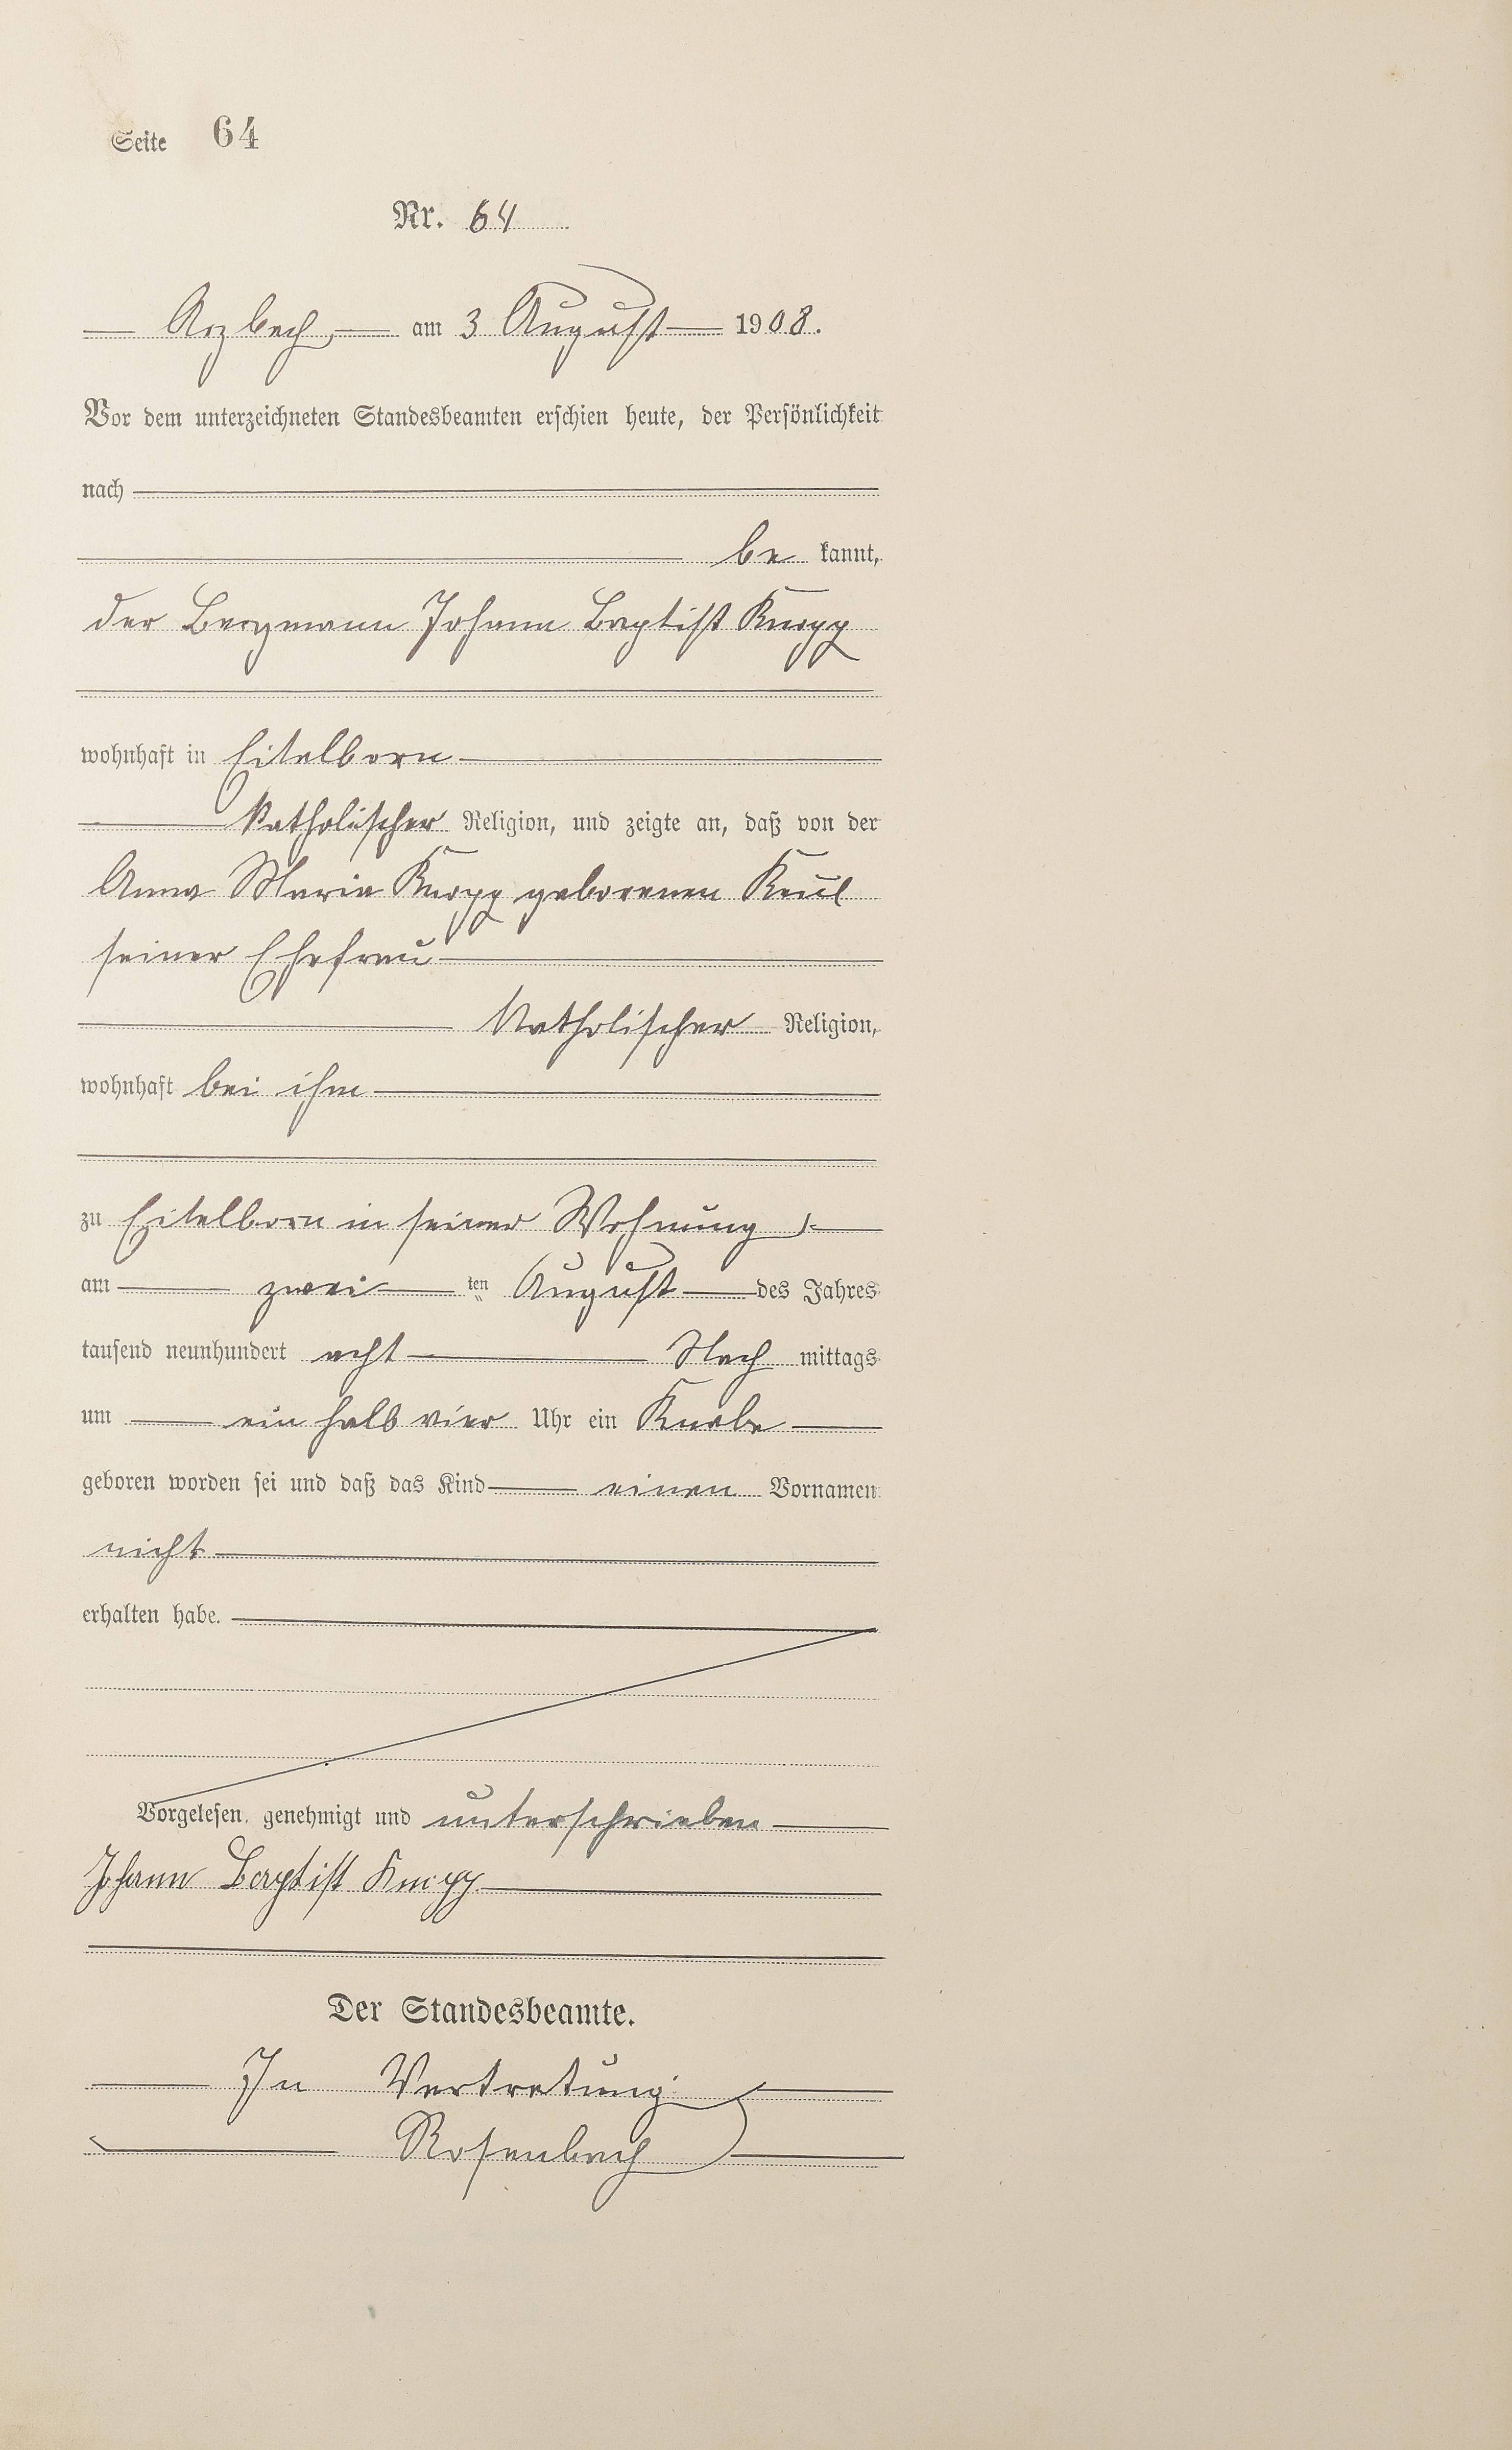 Seite 64
Nr. 64
Arzbach, am 3 August 1908.
Vor dem unterzeichneten Standesbeamten erschien heute, der Persönlichkeit
nach
be kannt,
der Bergmann Johann Baptist Knopp
wohnhaft in Eitelborn
katholischer Religion, und zeigte an, daß von der
Anna Maria Knopp geborenen Keul
seiner Ehefrau
katholischer Religion,
wohnhaft bei ihm
zu Eitelborn in seiner Wohnung
am zwei ten August des Jahres
tausend neunhundert acht Nach mittags
um ein halb vier Uhr ein Knabe
geboren worden sei und daß das Kind einen Vornamen
nicht
erhalten habe.
Vorgelesen, genehmigt und unterschrieben
Johann Baptist Knopp
Der Standesbeamte.
In Vertretung
Rosenbach